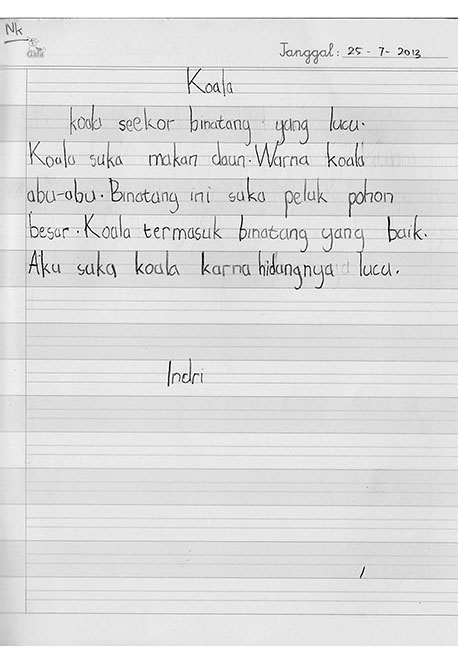 Nk
Gafa
Tanggal: 25 - 7 - 2013
Koala
koala seekor binatang yang lucu.
Koala suka makan daun. Warna koala
abu-abu. Binatang ini suka peluk pohon
besar. Koala termasuk binatang yang baik.
Aku suka koala karna hidungnya lucu.
Indri